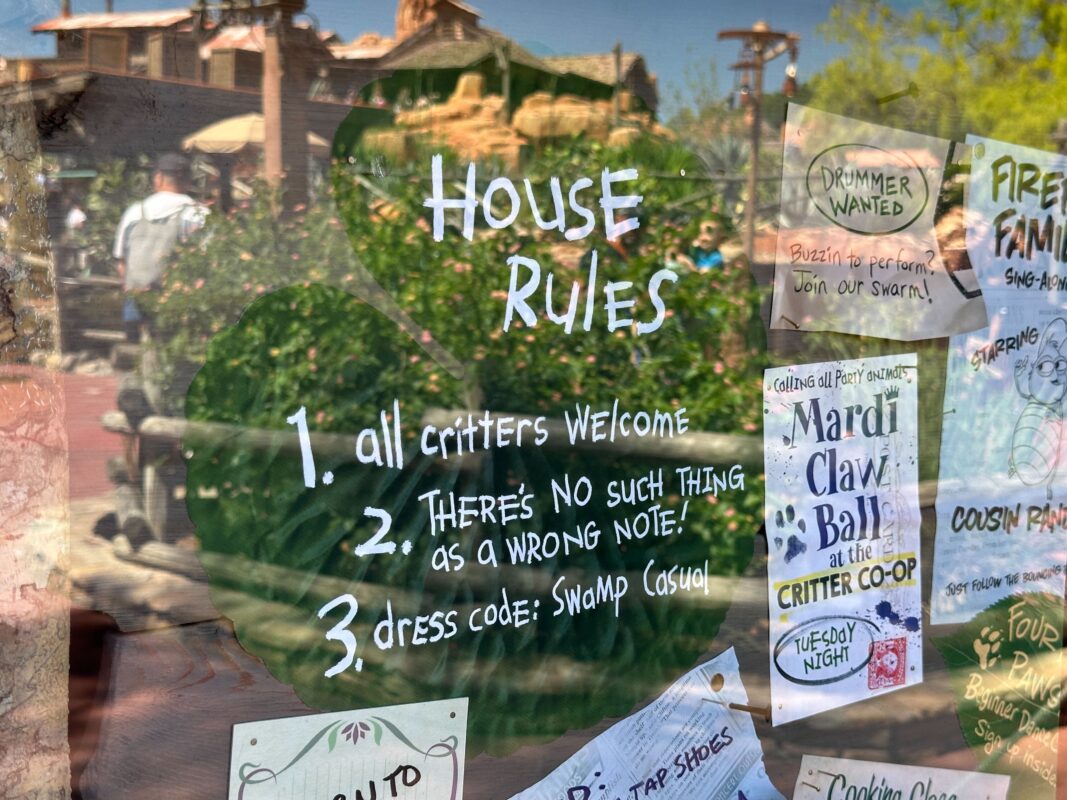 HOUSE
RULES
1. all critters WELCOME
2. THERE'S NO SUCH THING
as a WRONG NOTE!
3. dress code: Swamp Casual
DRUMMER
WANTED
Buzzin to perform?
Join our swarm!
FAMI
SING-ALON
STARRING
COUSIN RAN
JUST FOLLOW THE BOUNCING
Calling all Party animals
Mardi
Claw
Ball
at the
CRITTER CO-OP
TUESDAY
NIGHT
FOUR
PAWS
Beginner Dance
Sign up inside
TO
TAP SHOES
Cooking Class